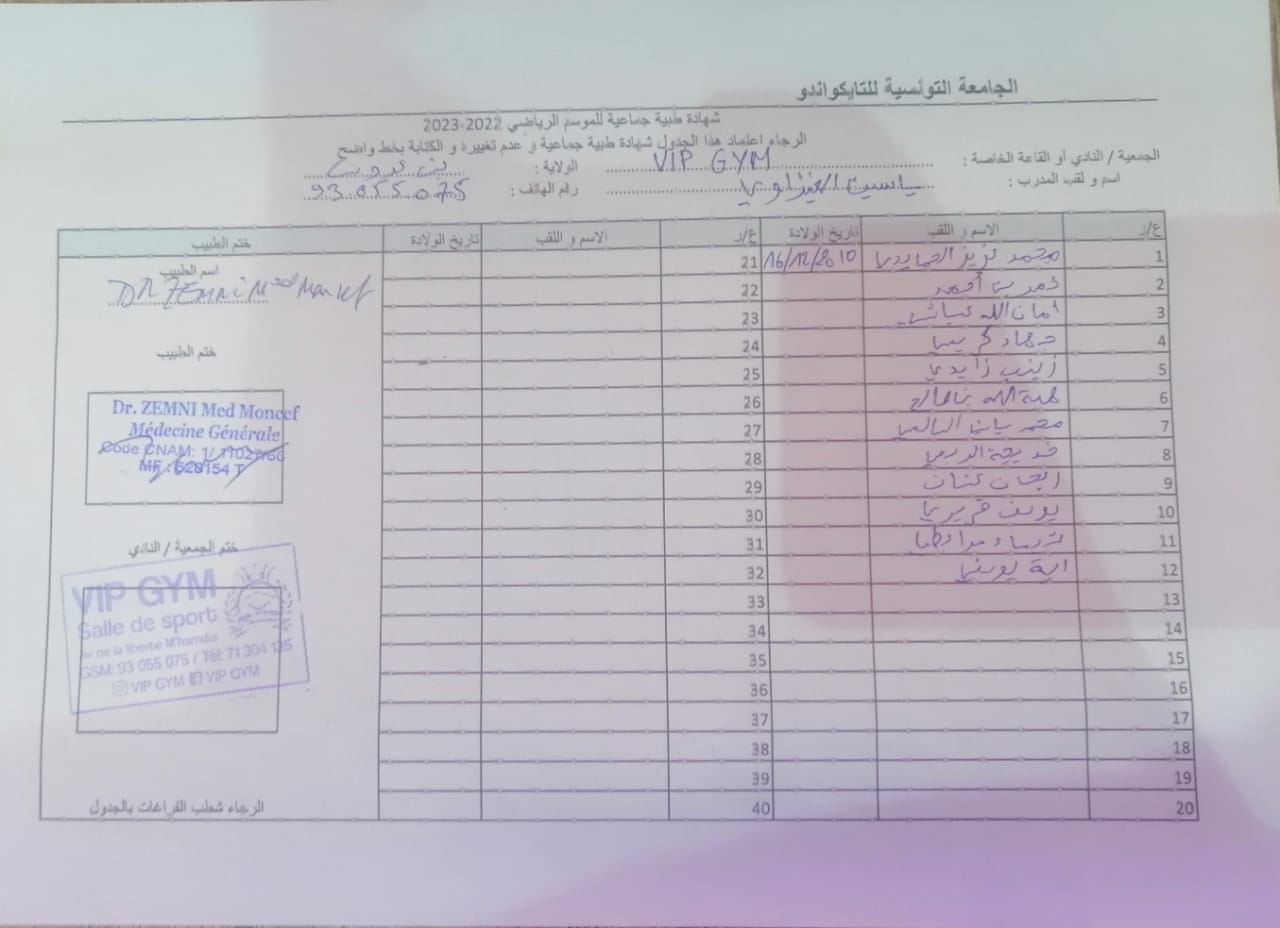 الجامعة التونسية للتايكواندو
شهادة طبية جماعية للموسم الرياضي 2022-2023
الرجاء اعتماد هذا الجدول شهادة طبية جماعية و عدم تغييره و الكتابة بخط واضح
الجمعية / النادي أو القاعة الخاصة : VIP GYM الولاية : بن عروس
اسم و لقب المدرب : ياسين رقم الهاتف : 93 055 075
ع/ر الاسم و اللقب تاريخ الولادة ع/ر الاسم و اللقب تاريخ الولادة ختم الطبيب
1 محمد عزيز 16/12/2010 21
2 عمر بن 22
3 أمان الله عياشي 23
4 جهاد كريمي 24
5 زينب زايدي 25
6 هبة الله بن صالح 26
7 محمد السالمي 27
8 خديجة 28
9 29
10 يوسف 30
11 31
12 اية يوسفي 32
13 33
14 34
15 35
16 36
17 37
18 38
19 39
20 40
اسم الطبيب
DR ZEMNI Med Moncef
ختم الطبيب
Dr. ZEMNI Med Moncef
Médecine Générale
Code CNAM: 1/
MF :
ختم الجمعية / النادي
VIP GYM
Salle de sport
Av de la liberté M'hamdia
GSM: 93 055 075 / Tél: 71 304 135
VIP GYM VIP GYM
الرجاء شطب الفراغات بالجدول